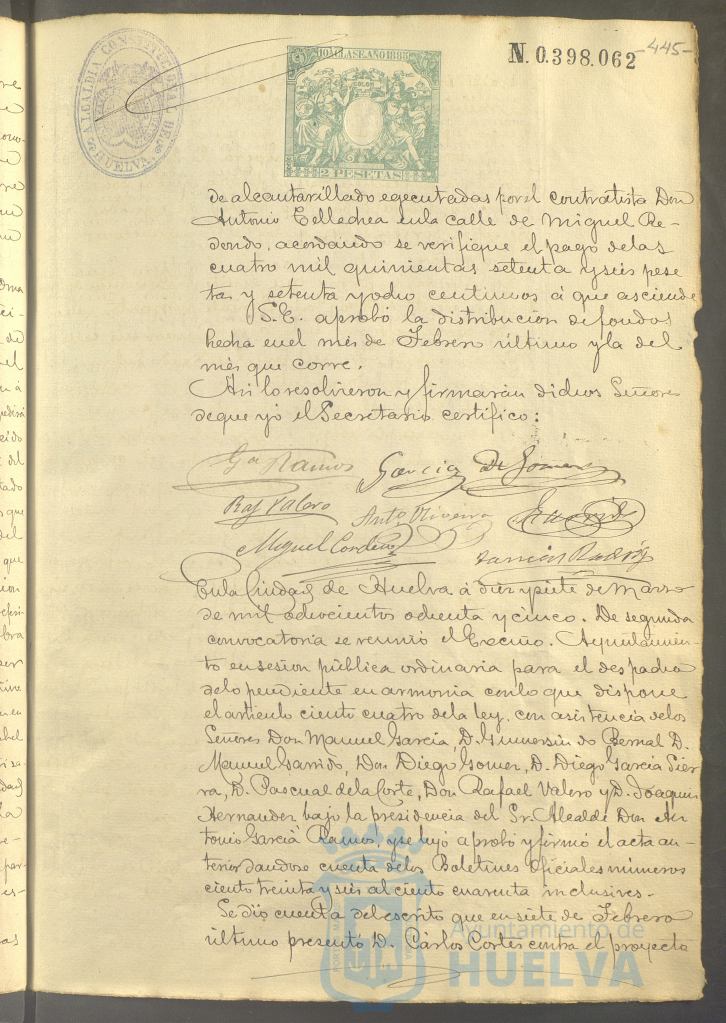 ALCALDIA CONSTITUCIONAL DE HUELVA
10ª CLASE. AÑO 1885
2 PESETAS
N. 0.398.062
-445-
de alcantarillado egecutadas por el contratista Don
Antonio Tellechea en la calle de Miguel Re-
dondo, acordando se verifique el pago de las
cuatro mil quinientas setenta y seis pese
tas y setenta y ocho centimos á que asciende
S.E. aprobó la distribucion de fondos
hecha en el mes de Febrero último y la del
mes que corre.
Asi lo resolvieron y firmarán dichos Señores
de que yo el Secretario certifico:
Gª Ramos Garcia D. Gomez
Raf Valero Antº Oliveira Garrido
Miguel Cordero
En la Ciudad de Huelva á diez y siete de Marzo
de mil ochocientos ochenta y cinco. De segunda
convocatoria se reunió el Excmo. Ayuntamien-
to en sesion pública ordinaria para el despacho
de lo pendiente en armonia con lo que dispone
el articulo ciento cuatro de la ley, con asistencia de los
Señores Don Manuel Garcia, D. Gumersindo Bernal D.
Manuel Garrido, Don Diego Gomez, D. Diego Garcia Sier
ra, D. Pascual de la Corte, Don Rafael Valero y D. Joaquin
Hernandez bajo la presidencia del Sr. Alcalde Don An
tonio Garcia Ramos, y se leyó aprobó y firmó el acta an-
terior dandose cuenta de los Boletines oficiales números
ciento treinta y seis al ciento cuarenta inclusives.
Se dió cuenta del escrito que en siete de Febrero
último presentó D. Cárlos Cortés contra el proyecto
Ayuntamiento de
HUELVA